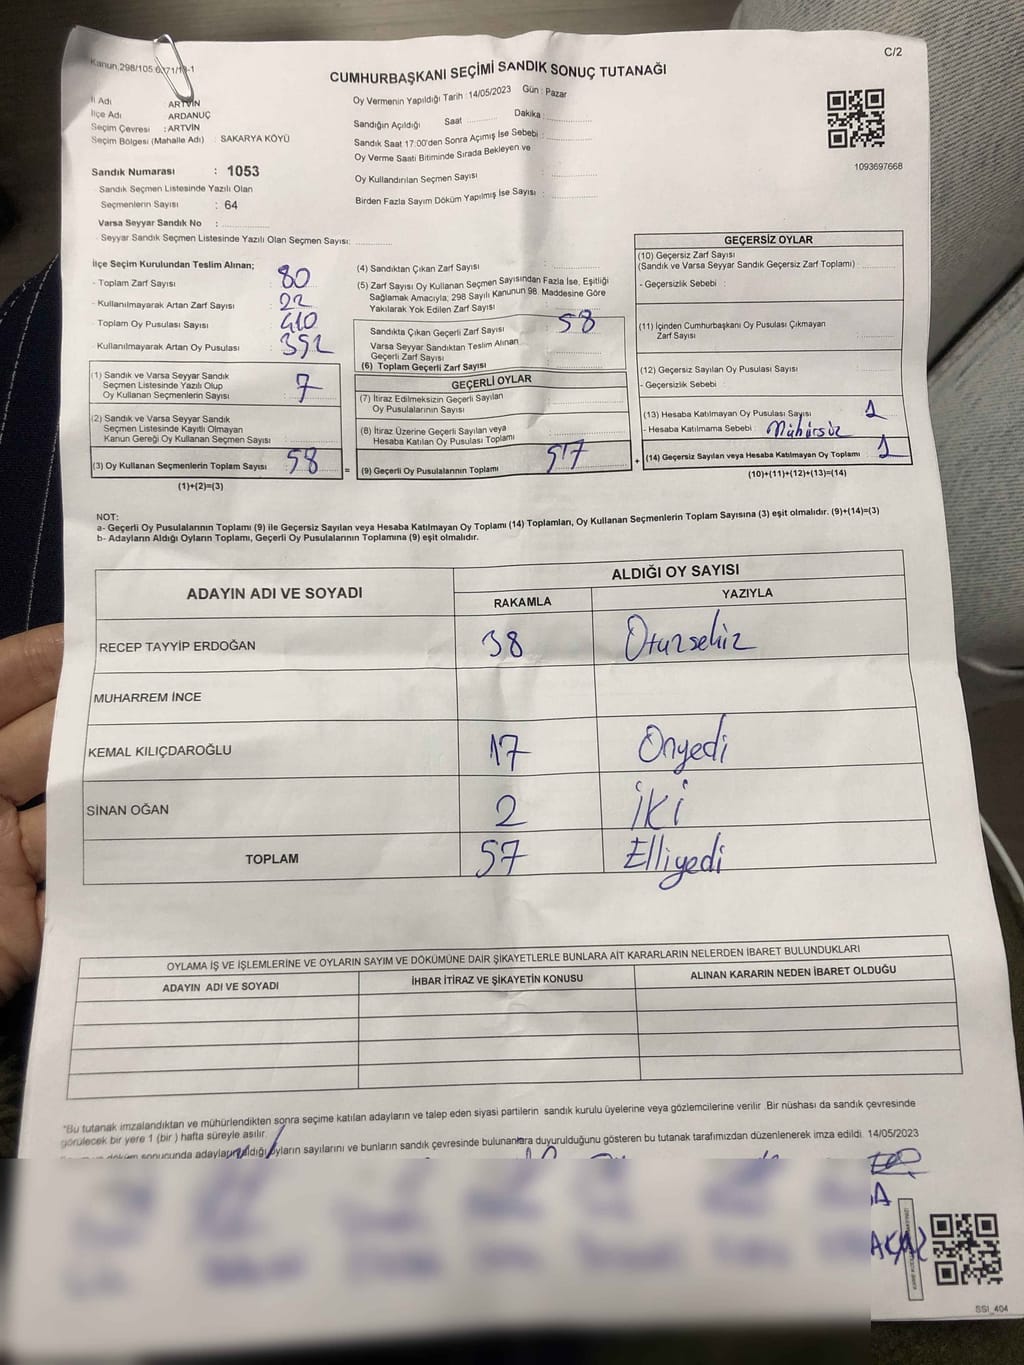 Kanun.298/105
C/2
CUMHURBAŞKANI SEÇİMİ SANDIK SONUÇ TUTANAĞI
İl Adı ARTVİN
İlçe Adı ARDANUÇ
Seçim Çevresi : ARTVİN
Seçim Bölgesi (Mahalle Adı) : SAKARYA KÖYÜ
Sandık Numarası : 1053
Sandık Seçmen Listesinde Yazılı Olan
Seçmenlerin Sayısı : 64
Varsa Seyyar Sandık No :
Seyyar Sandık Seçmen Listesinde Yazılı Olan Seçmen Sayısı:
Oy Vermenin Yapıldığı Tarih : 14/05/2023 Gün : Pazar
Sandığın Açıldığı Saat Dakika
Sandık Saat 17:00'den Sonra Açımış İse Sebebi :
Oy Verme Saati Bitiminde Sırada Bekleyen ve
Oy Kullandırılan Seçmen Sayısı
Birden Fazla Sayım Döküm Yapılmış İse Sayısı
1093697668
İlçe Seçim Kurulundan Teslim Alınan;
- Toplam Zarf Sayısı : 80
- Kullanılmayarak Artan Zarf Sayısı : 22
- Toplam Oy Pusulası Sayısı : 410
- Kullanılmayarak Artan Oy Pusulası : 352
(1) Sandık ve Varsa Seyyar Sandık
Seçmen Listesinde Yazılı Olup
Oy Kullanan Seçmenlerin Sayısı : 7
(2) Sandık ve Varsa Seyyar Sandık
Seçmen Listesinde Kayıtlı Olmayan
Kanun Gereği Oy Kullanan Seçmen Sayısı
(3) Oy Kullanan Seçmenlerin Toplam Sayısı : 58
(1)+(2)=(3)
(4) Sandıktan Çıkan Zarf Sayısı
(5) Zarf Sayısı Oy Kullanan Seçmen Sayısından Fazla İse, Eşitliği
Sağlamak Amacıyla; 298 Sayılı Kanunun 98. Maddesine Göre
Yakılarak Yok Edilen Zarf Sayısı
Sandıkta Çıkan Geçerli Zarf Sayısı : 58
Varsa Seyyar Sandıktan Teslim Alınan
Geçerli Zarf Sayısı
(6) Toplam Geçerli Zarf Sayısı
GEÇERLİ OYLAR
(7) İtiraz Edilmeksizin Geçerli Sayılan
Oy Pusulalarının Sayısı
(8) İtiraz Üzerine Geçerli Sayılan veya
Hesaba Katılan Oy Pusulası Toplamı
= (9) Geçerli Oy Pusulalarının Toplamı
GEÇERSİZ OYLAR
(10) Geçersiz Zarf Sayısı
(Sandık ve Varsa Seyyar Sandık Geçersiz Zarf Toplamı)
- Geçersizlik Sebebi :
(11) İçinden Cumhurbaşkanı Oy Pusulası Çıkmayan
Zarf Sayısı
(12) Geçersiz Sayılan Oy Pusulası Sayısı
- Geçersizlik Sebebi :
(13) Hesaba Katılmayan Oy Pusulası Sayısı 1
- Hesaba Katılmama Sebebi : Mühürsüz
+ (14) Geçersiz Sayılan veya Hesaba Katılmayan Oy Toplamı 1
(10)+(11)+(12)+(13)=(14)
NOT:
a- Geçerli Oy Pusulalarının Toplamı (9) ile Geçersiz Sayılan veya Hesaba Katılmayan Oy Toplamı (14) Toplamları, Oy Kullanan Seçmenlerin Toplam Sayısına (3) eşit olmalıdır. (9)+(14)=(3)
b- Adayların Aldığı Oyların Toplamı, Geçerli Oy Pusulalarının Toplamına (9) eşit olmalıdır.
ADAYIN ADI VE SOYADI ALDIĞI OY SAYISI
RAKAMLA YAZIYLA
RECEP TAYYİP ERDOĞAN 38 Otuzsekiz
MUHARREM İNCE
KEMAL KILIÇDAROĞLU 17 Onyedi
SİNAN OĞAN 2 İKİ
TOPLAM 57 Elliyedi
OYLAMA İŞ VE İŞLEMLERİNE VE OYLARIN SAYIM VE DÖKÜMÜNE DAİR ŞİKAYETLERLE BUNLARA AİT KARARLARIN NELERDEN İBARET BULUNDUKLARI
ADAYIN ADI VE SOYADI İHBAR İTİRAZ VE ŞİKAYETİN KONUSU ALINAN KARARIN NEDEN İBARET OLDUĞU
"Bu tutanak imzalandıktan ve mühürlendikten sonra seçime katılan adayların ve talep eden siyasi partilerin sandık kurulu üyelerine veya gözlemcilerine verilir .Bir nüshası da sandık çevresinde
görülecek bir yere 1 (bir) hafta süreyle asılır.
döküm sonucunda adayların aldığı oyların sayılarını ve bunların sandık çevresinde bulunanlara duyurulduğunu gösteren bu tutanak tarafımızdan düzenlenerek imza edildi. 14/05/2023
SSI_404